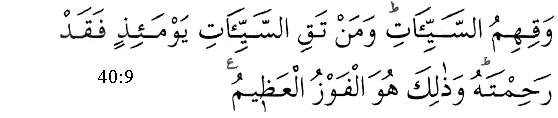 وَقِهِمُ السَّيِّاٰتِؕ وَمَنْ تَقِ السَّيِّاٰتِ يَوْمَئِذٍ فَقَدْ
رَحِمْتَهٗؕ وَذٰلِكَ هُوَ الْفَوْزُ الْعَظِيمُ ع
40:9